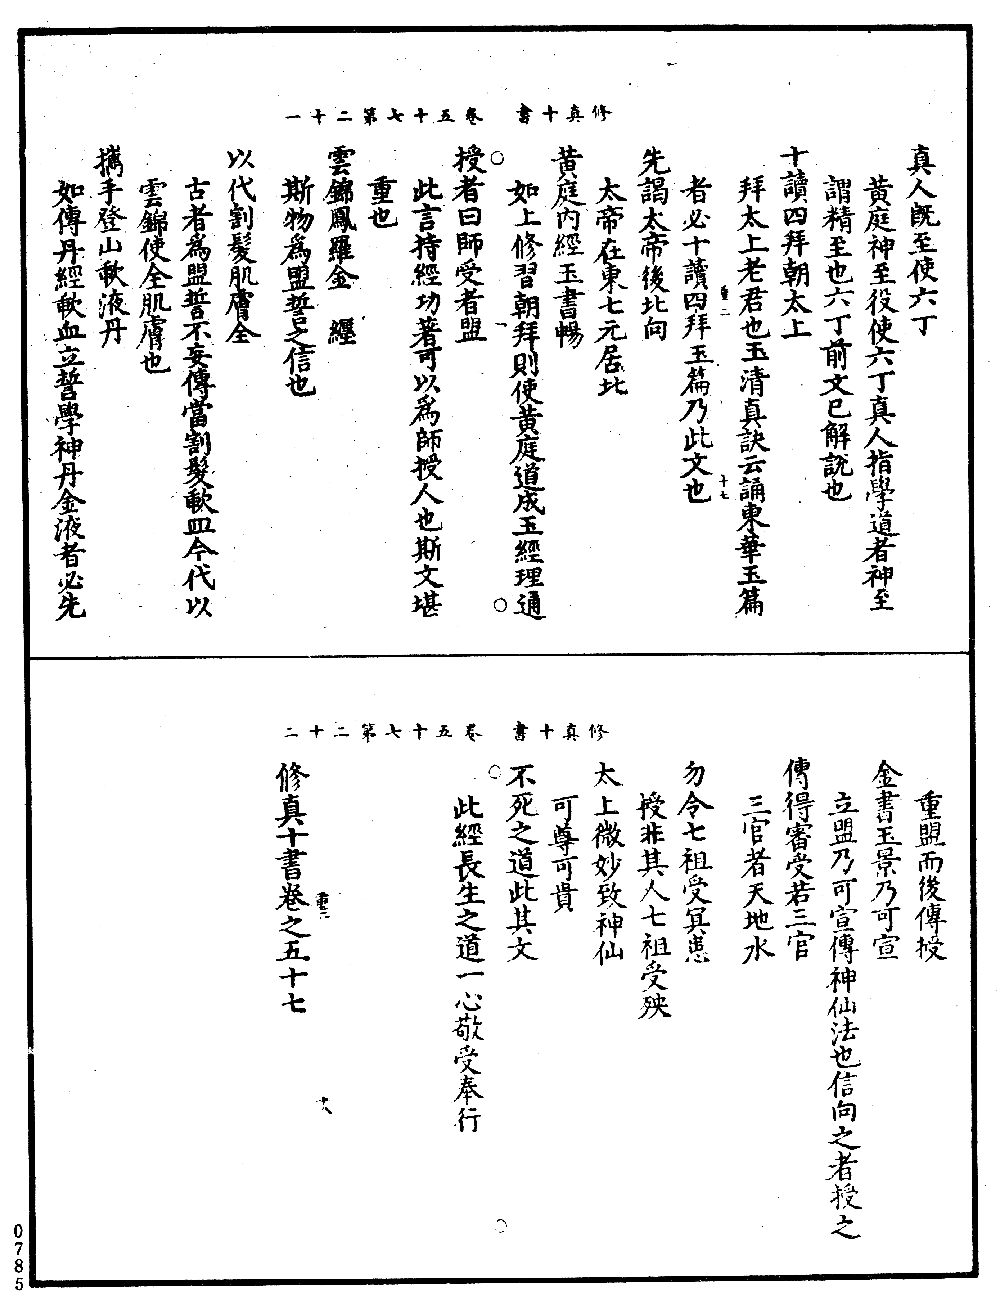 真人既至使六丁
黄庭神至役使六丁真人指學道者神至
謂精至也六丁前文已解説也
十讀四拜朝太上
拜太上老君也玉清真訣云誦東華玉篇
者必十讀四拜玉篇乃此文也
重二
十七
先謁太帝後北向
太帝在東七元居北
黄庭内經玉書暢
如上修習朝拜則使黄庭道成玉經理通
授者曰師受者盟
此言持經功著可以爲師授人也斯文堪
重也
雲錦鳳羅金 纒
斯物爲盟誓之信也
以代割髮肌膚全
古者爲盟誓不妄傳當割髮歃血今代以
雲錦使全肌膚也
攜手登山歃液丹
如傳丹經歃血立誓學神丹金液者必先
修真十書 卷五十七第二十一
重盟而後傳授
金書玉景乃可宣
立盟乃可宣傳神仙法也信向之者授之
傳得審受若三官
三官者天地水
勿令七祖受冥患
授非其人七祖受殃
太上微妙致神仙
可尊可貴
不死之道此其文
此經長生之道一心敬受奉行
修真十書卷之五十七
重二
十八
修真十書 卷五十七第二十二
0785